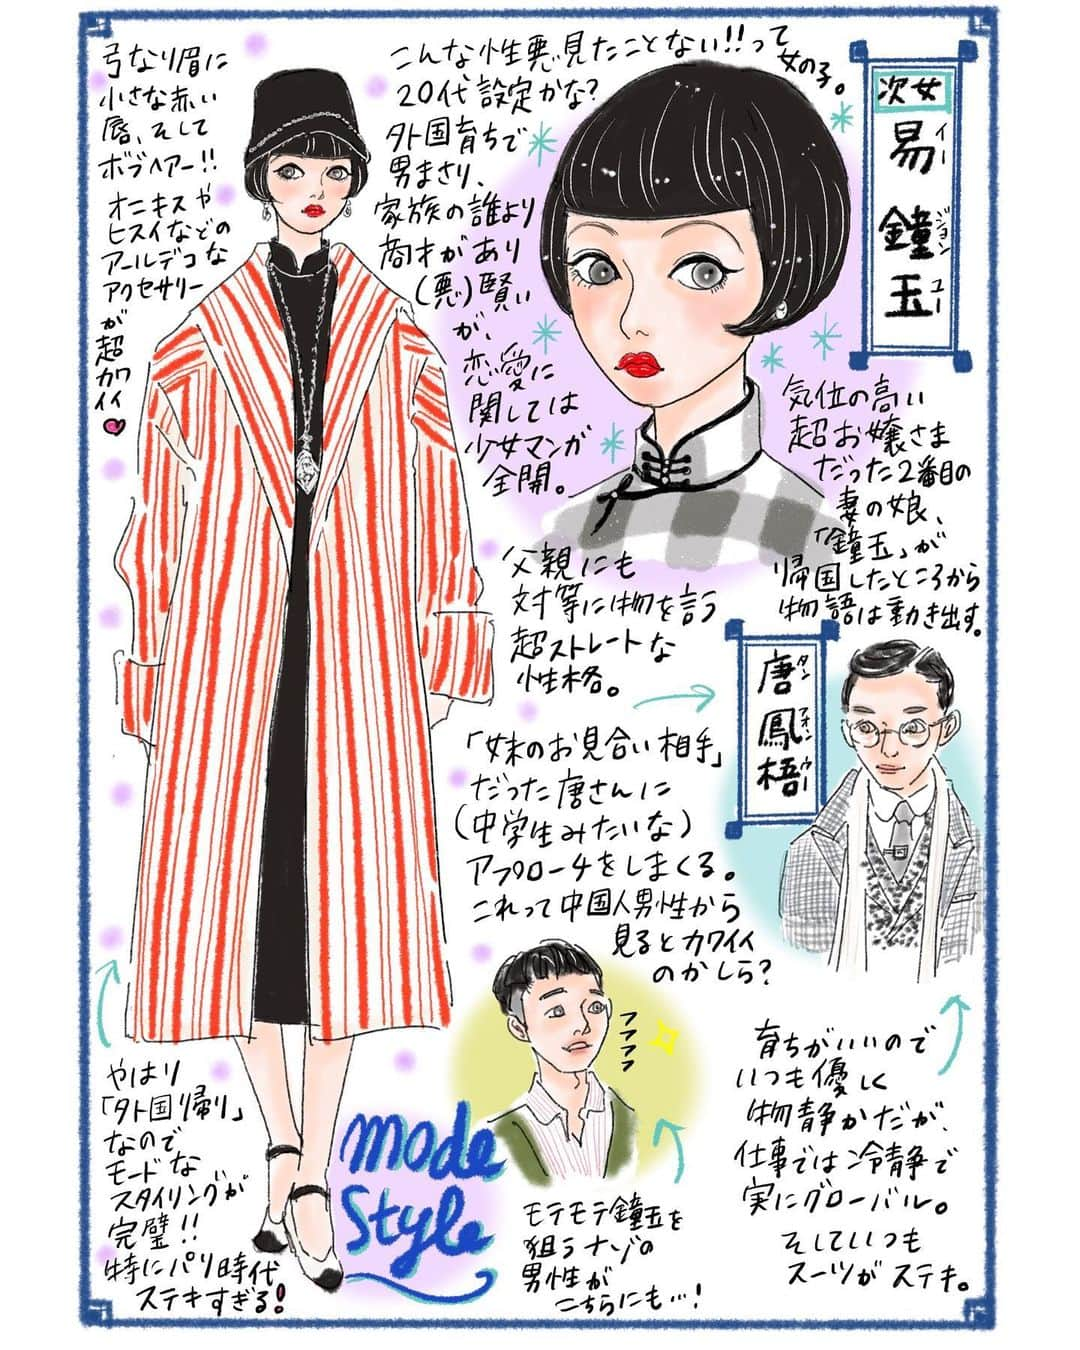 弓なり眉に
小さな赤い
唇、そして
ボブヘアー!!
オニキスや
ヒスイなどの
アールデコな
アクセサリー
が超カワイイ
こんな性悪見たことない!!って女の子。
20代設定かな?
外国育ちで
男まさり、
家族の誰より
商才があり
(悪)賢い
が、
恋愛に
関しては
少女マンガ
全開。
次女
易鐘玉
イージョンユー
気位の高い
超お嬢さま
だった2番目の
妻の娘、
「鐘玉」が
帰国したところから
物語は動き出す。
父親にも
対等に物を言う
超ストレートな
性格。
唐鳳梧
タンフォンウー
「妹のお見合い相手」
だった唐さんに
(中学生みたいな)
アプローチをしまくる。
これって中国人男性から
見るとカワイイ
のかしら?
フフフフ
やはり
「外国帰り」
なので
モードな
スタイリングが
完璧!!
特にパリ時代
ステキすぎる!
mode
Style
モテモテ鐘玉を
狙うナゾの
男性が
こちらにも…!
育ちがいいので
いつも優しく
物静かだが、
仕事では冷静で
実にグローバル。
そしていつも
スーツがステキ。